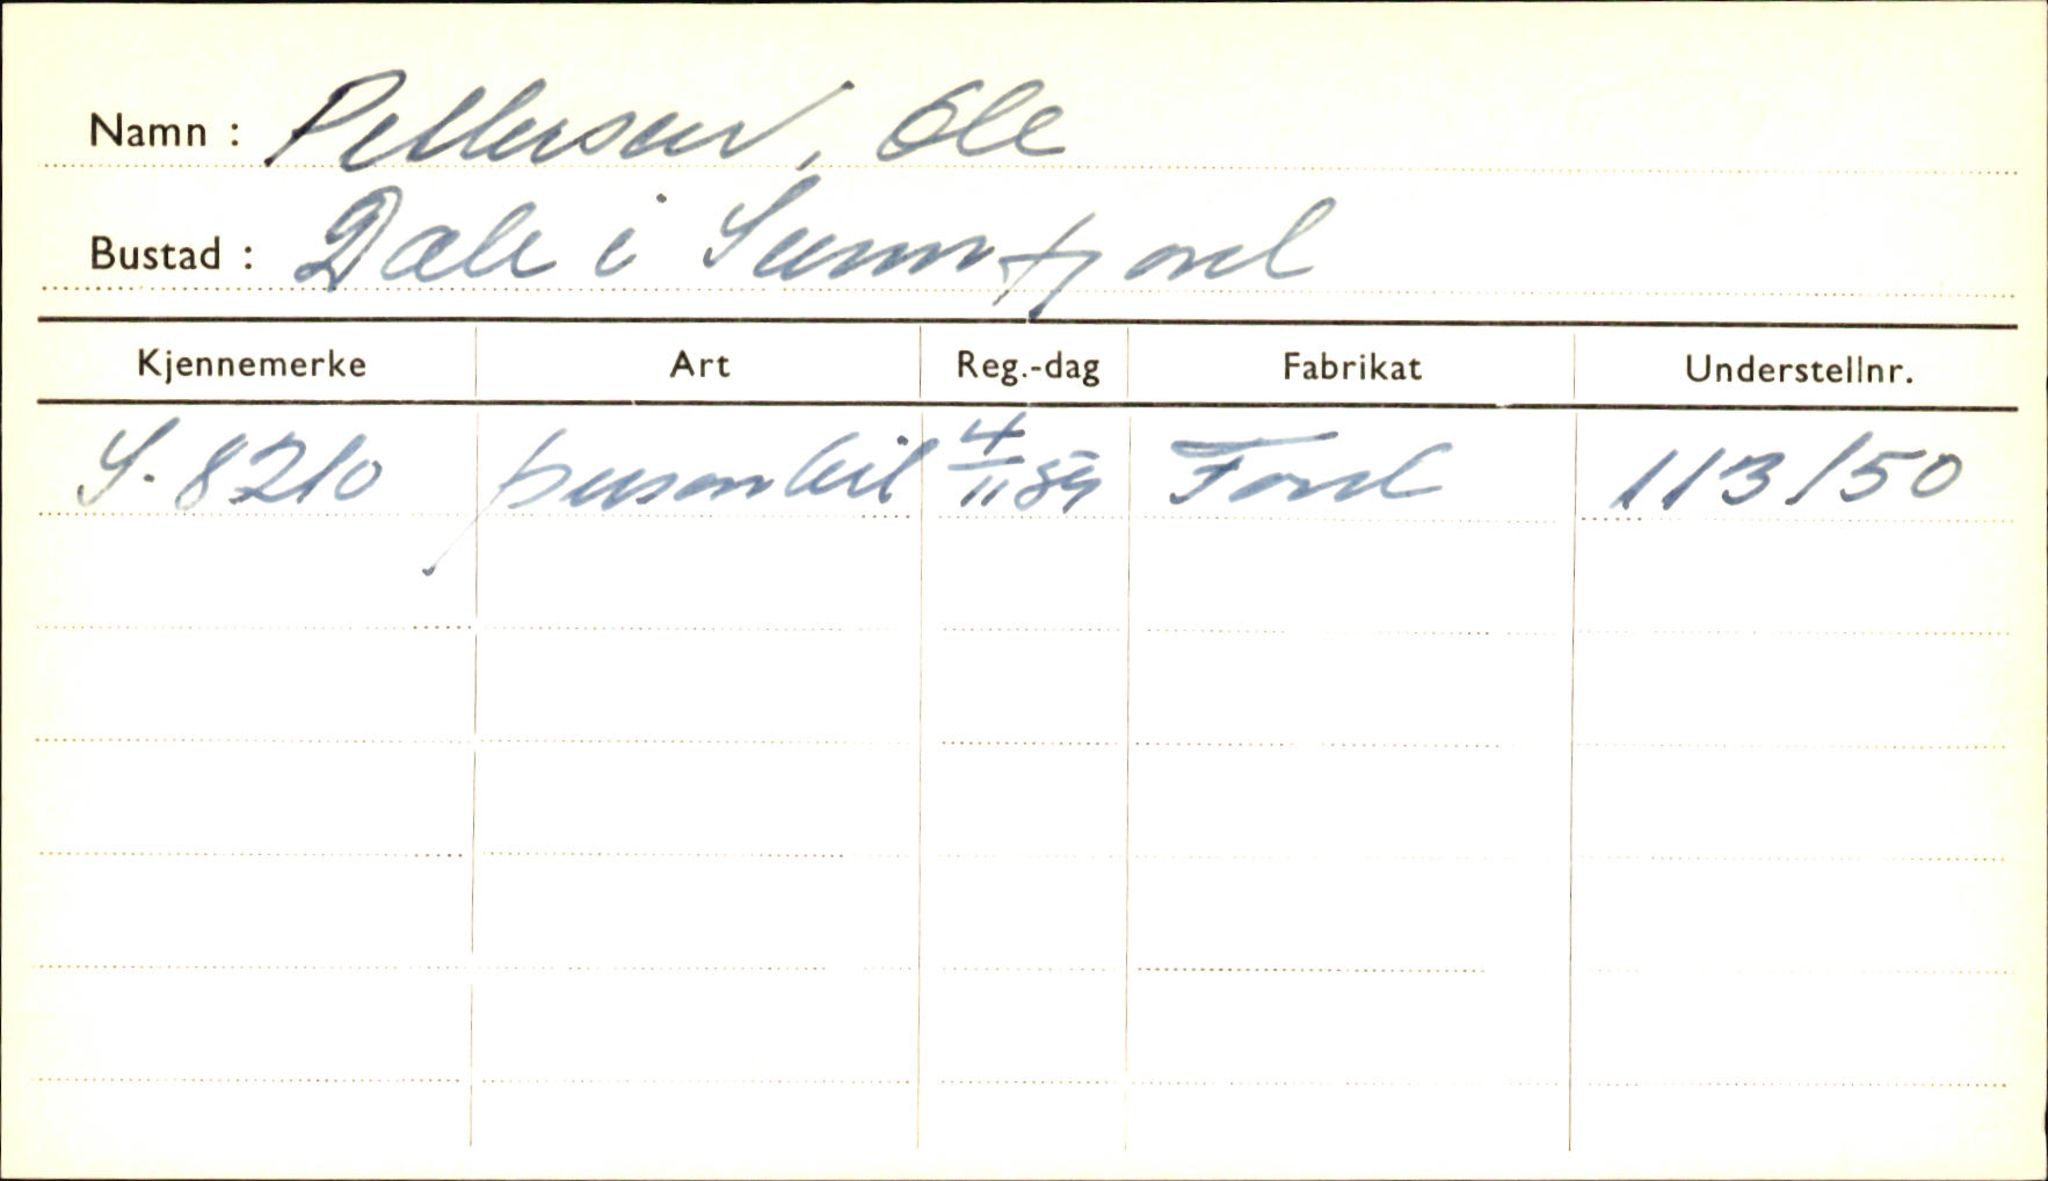 Namn : Pettersen, Ole
Bustad : Dale i Sunnfjord
Kjennemerke Art Reg.-dag Fabrikat Understellnr.
S-8210 personbil 4/11 59 Ford 113150